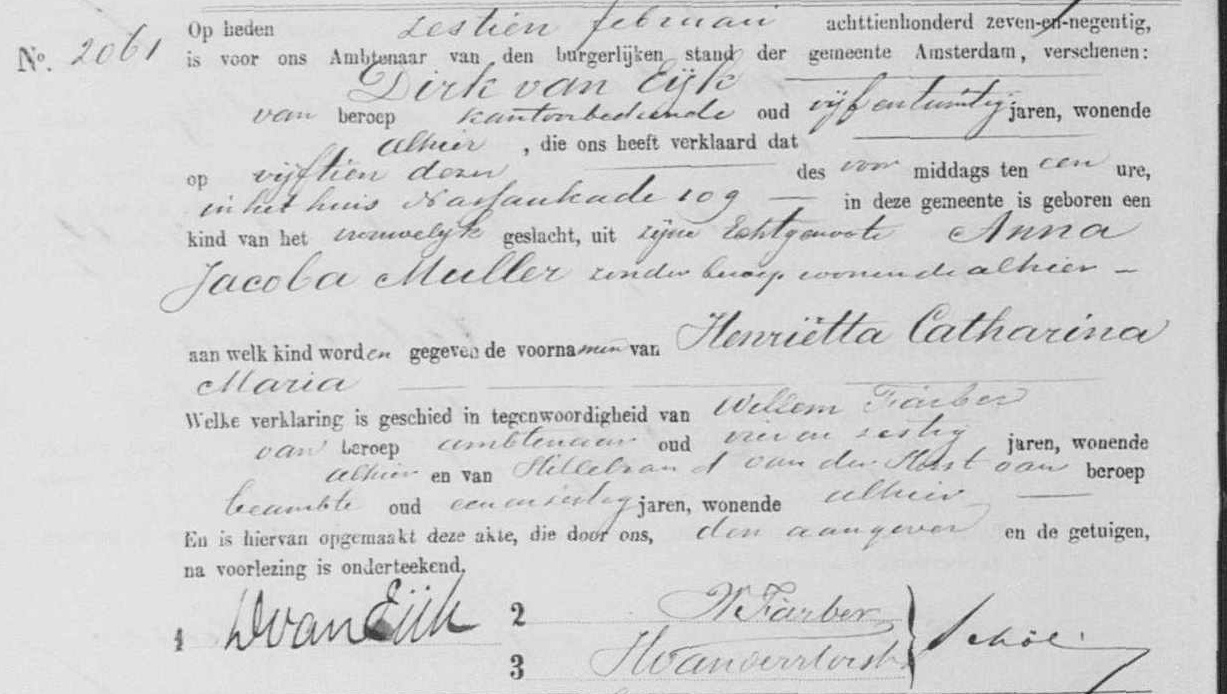 Op heden zestien februari achttienhonderd zeven-en-negentig,
No. 2061 is voor ons Ambtenaar van den burgerlijken stand der gemeente Amsterdam, verschenen:
Dirk van Eijk
van beroep kantoorbediende oud vijf en twintig jaren, wonende
alhier, die ons heeft verklaard dat
op vijftien dezer des voor middags ten een ure,
in het huis Nassaukade 109 in deze gemeente is geboren een
kind van het vrouwelijk geslacht, uit zijne Echtgenoote Anna
Jacoba Muller zonder beroep wonende alhier
aan welk kind worden gegeven de voornamen van Henriëtta Catharina
Maria
Welke verklaring is geschied in tegenwoordigheid van Willem Färber
van beroep ambtenaar oud vier en zestig jaren, wonende
alhier en van Hillebrand van der Horst van beroep
beambte oud een en zestig jaren, wonende alhier
En is hiervan opgemaakt deze akte, die door ons, den aangever en de getuigen,
na voorlezing is onderteekend.
1 D van Eijk 2 W Färber
3 H van der Horst